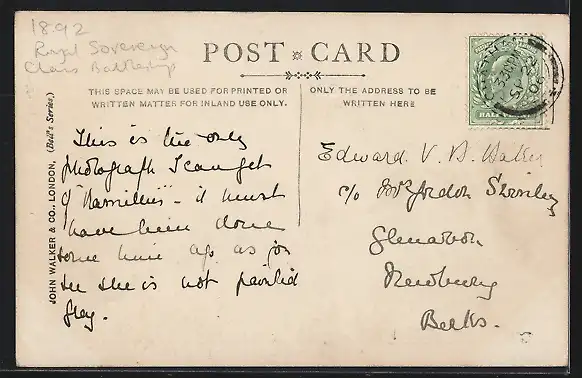 1892
Royal Sovereign
Class Battleship
POST CARD
THIS SPACE MAY BE USED FOR PRINTED OR
WRITTEN MATTER FOR INLAND USE ONLY.
ONLY THE ADDRESS TO BE
WRITTEN HERE
JOHN WALKER & CO., LONDON, (Bell's Series.)
This is the only
photograph I can get
of "Ramillies" - it must
have been done
some time ago as you
see she is not painted
grey.
Edward V. B.
c/o Gordon
Newbury
Berks.
HALFPENNY